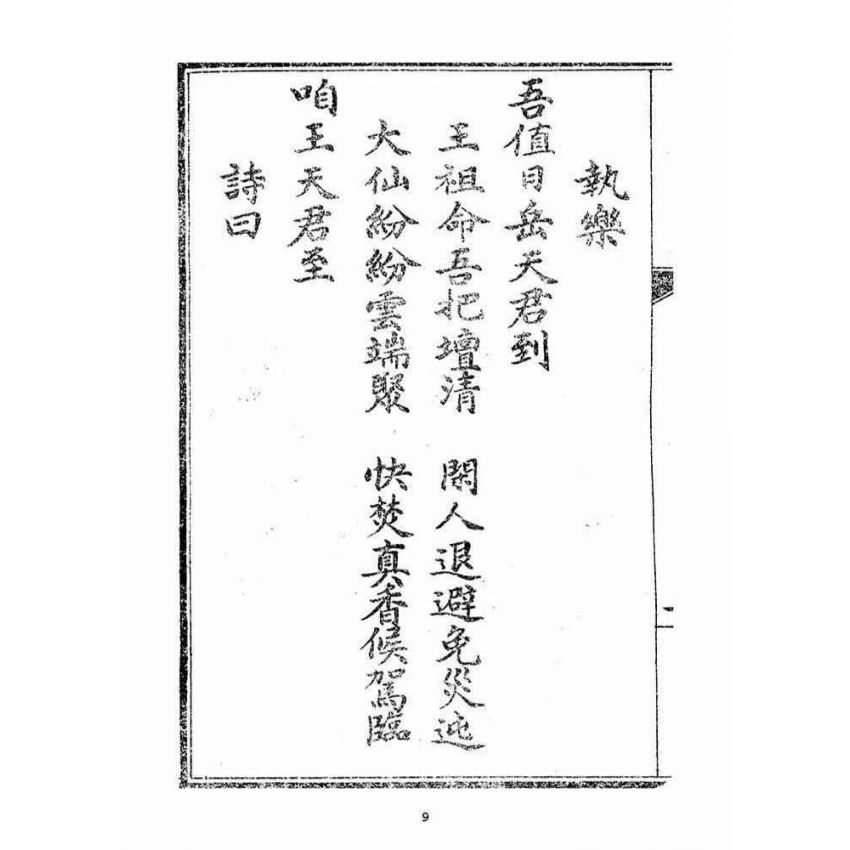 執樂
吾值日岳天君到
王祖命吾把壇清　閑人退避免災迍
大仙紛紛雲端聚　快焚真香候駕臨
咱王天君至
詩曰
9